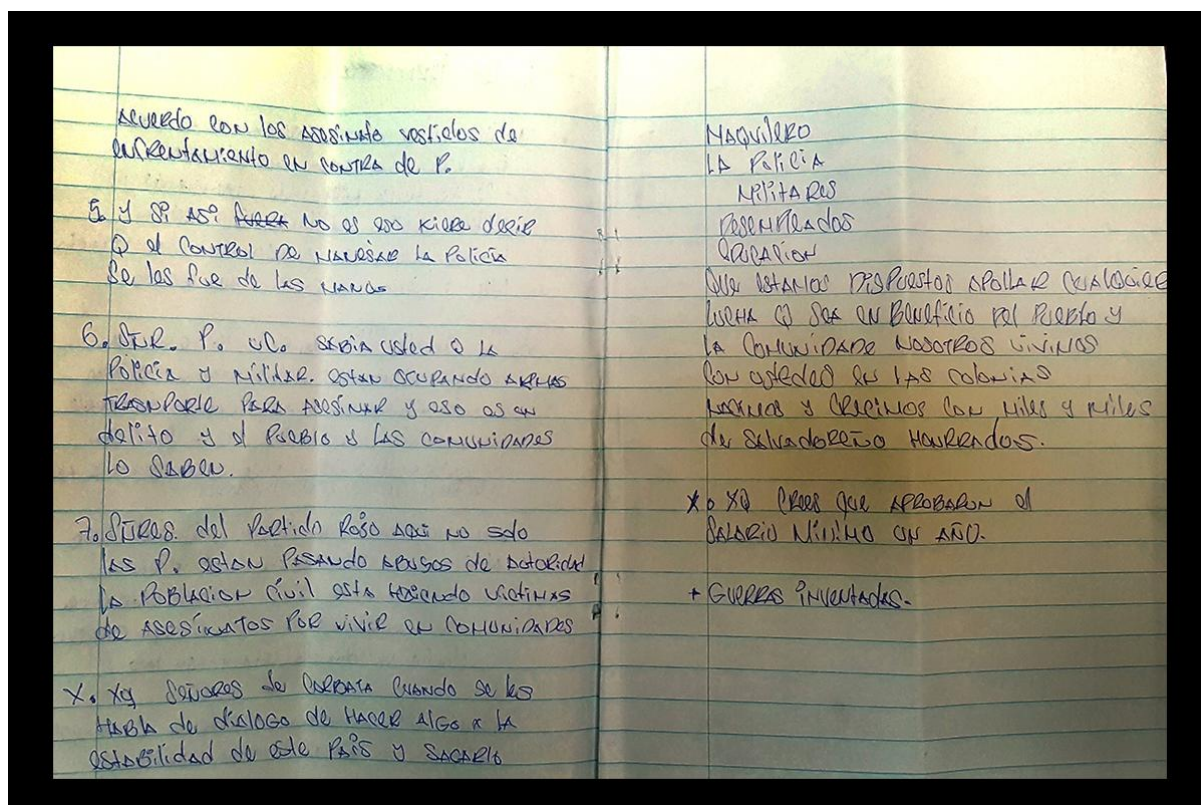 Acuerdo con los asesinato vestidos de
enfrentamiento en contra de P.
5. y si asi fuera no es eso kiere decir
Q el control de manejar la policía
se les fue de las manos
6. Sñr. P. uc. sabia usted Q la
Policía y Militar. estan ocupando armas
trasnporte para asesinar y eso es un
delito y el pueblo y las comunidades
lo saben.
7. Sñres. del Partido Rojo aqui no solo
las P. estan pasando abusos de autoridad
la poblacion civil esta victimas
de asesinatos por vivir en comunidades
X. XQ Señores de corbata cuando se les
habla de dialogo de hacer algo x la
estabilidad de este País y sacarlo
Maquilero
La Policia
Militares
Desempleados
Que estamos dispuestos apollar cualquier
lucha Q sea en beneficio del pueblo y
la comunidade nosotros vivimos
con ustedes en las colonias
nacimos y crecimos con miles y miles
de Salvadoreño honrrados.
X o XQ crees que aprobaron el
salario minimo un año.
+ Guerras inventadas.